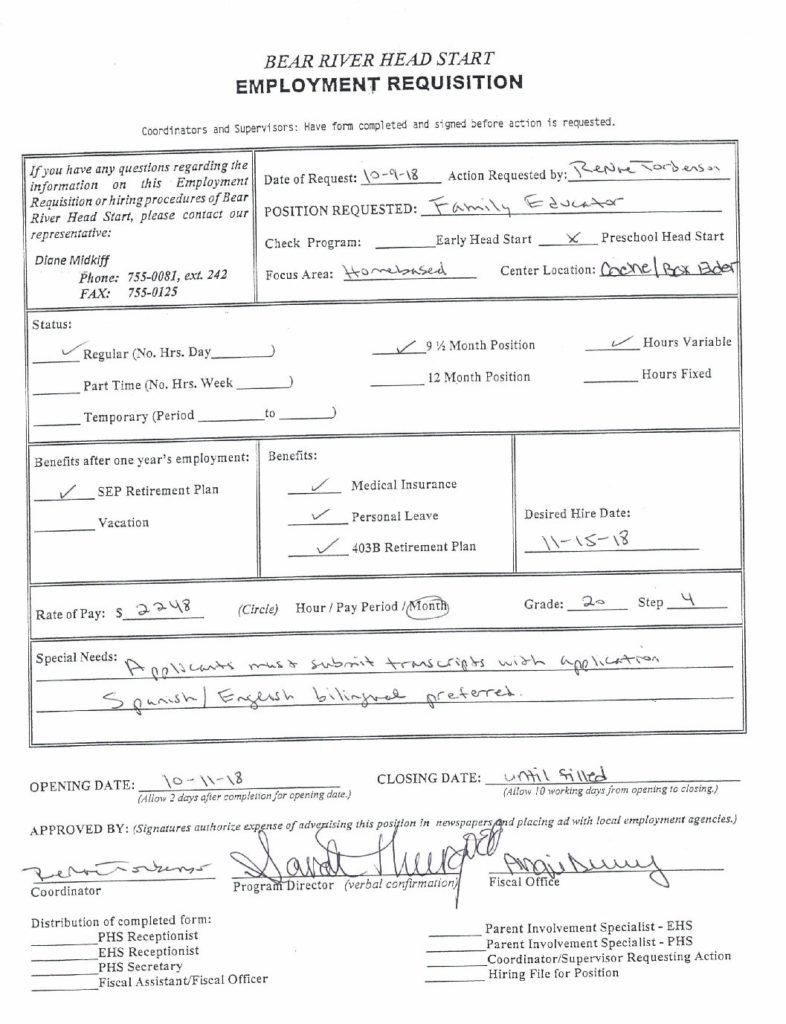 BEAR RIVER HEAD START
EMPLOYMENT REQUISITION
Coordinators and Supervisors: Have form completed and signed before action is requested.
If you have any questions regarding the
information on this Employment
Requisition or hiring procedures of Bear
River Head Start, please contact our
representative:
Diane Midkiff
Phone: 755-0081, ext. 242
FAX: 755-0125
Date of Request: 10-9-18 Action Requested by: Renee Torbenson
POSITION REQUESTED: Family Educator
Check Program: ____ Early Head Start X Preschool Head Start
Focus Area: Homebased Center Location: Cache/Box Elder
Status:
✓ Regular (No. Hrs. Day____) ✓ 9 ½ Month Position ✓ Hours Variable
____ Part Time (No. Hrs. Week ____) ____ 12 Month Position ____ Hours Fixed
____ Temporary (Period ____ to ____)
Benefits after one year's employment:
✓ SEP Retirement Plan
____ Vacation
Benefits:
✓ Medical Insurance
✓ Personal Leave
✓ 403B Retirement Plan
Desired Hire Date:
11-15-18
Rate of Pay: $ 2248 (Circle) Hour / Pay Period / Month Grade: 20 Step 4
Special Needs: Applicants must submit transcripts with application
Spanish/English bilingual preferred.
OPENING DATE: 10-11-18 CLOSING DATE: until filled
(Allow 2 days after completion for opening date.) (Allow 10 working days from opening to closing.)
APPROVED BY: (Signatures authorize expense of advertising this position in newspapers and placing ad with local employment agencies.)
Renee Torbenson Sarah
Coordinator Program Director (verbal confirmation) Fiscal Office
Distribution of completed form:
____ PHS Receptionist
____ EHS Receptionist
____ PHS Secretary
____ Fiscal Assistant/Fiscal Officer
____ Parent Involvement Specialist - EHS
____ Parent Involvement Specialist - PHS
____ Coordinator/Supervisor Requesting Action
____ Hiring File for Position